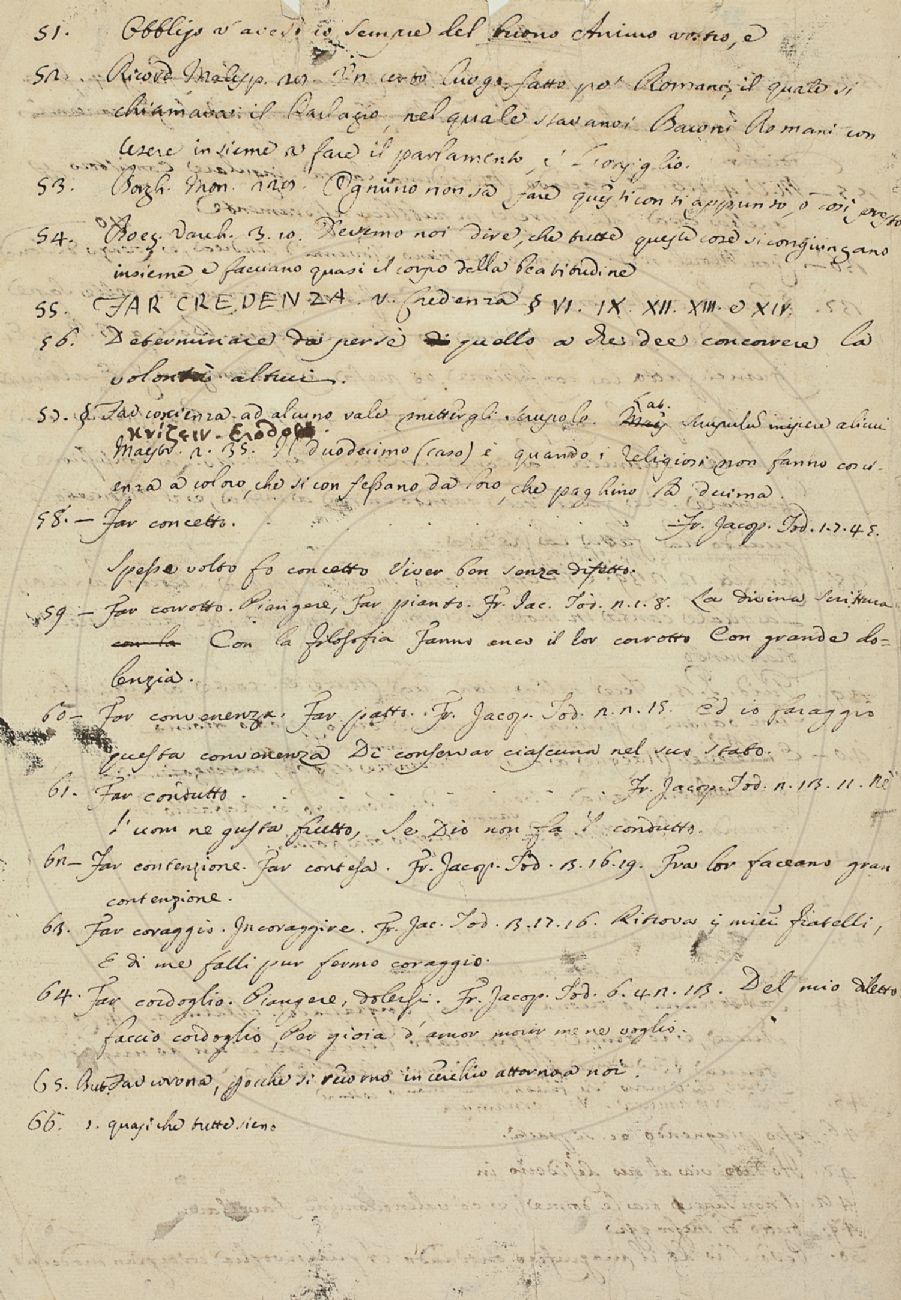 51. Obbligo v'avessi io sempre del buono Animo vostro, e
52. Ricord. Malesp. 20. Un certo luogo fatto pe' Romani, il quale si
chiamava il Parlagio, nel quale stavano i Baroni Romani con
essere insieme a fare il parlamento, e Consiglio.
53. Borgh. Mon. 229. Ognuno non sa fare questi conti appunto, o così presto
54. Boez. Varch. 3. 10. Devemo noi dire, che tutte queste cose si congiungano
insieme, e facciano quasi il corpo della Beatitudine
55. FAR CREDENZA. v. Credenza § VI. IX. XII. XIII. e XIV.
56. Determinare da persè di quello a che dee concorrere la
volontà altrui.
57. §. Far coscienza ad alcuno vale mettergli scrupolo. Lat. scrupulum injicere alicui
κνίζειν. Ἐροδοτ.
Maestr. 2. 35. Il duodecimo (caso) è quando i religiosi non fanno cosci-
enza a coloro, che si confessano da loro, che paghino la decima.
58. – Far concetto. . . . . . Fr. Jacop. Tod. 1. 7. 45.
Spesse volte fo concetto Viver ben senza difetto.
59 – Far corrotto. Piangere, Far pianto. Fr. Jac. Tod. 2. 1. 8. La divina Scrittura
con la Con la filosofia Fanno anco il lor corrotto Con grande do-
lenzia.
60 – Far convenenza. Far patto. Fr. Jacop. Tod. 2. 2. 15. Ed io faraggio
questa convenenza Di conservar ciascuna nel suo stato.
61. Far condutto . . . . . . Fr. Jacop. Tod. 2. 13. 11. Nè
l'uom ne gusta frutto, Se Dio non fa 'l condutto.
62 – Far contenzione. Far contesa. Fr. Jacop. Tod. 3. 16. 19. Fra lor faceano gran
contenzione.
63. Far coraggio. Incoraggire. Fr. Jac. Tod. 3. 17. 16. Ritrova i miei fratelli,
E di me falli pur fermo coraggio.
64. Far cordoglio. Piangere, dolersi. Fr. Jacop. Tod. 6. 42. 13. Del mio diletto
faccio cordoglio, Per gioia d'amor morir mene voglio.
65. But. Fan corona, poichè si tcorno in cerchio attorno a noi.
66. 1. quasi che tutte sieno